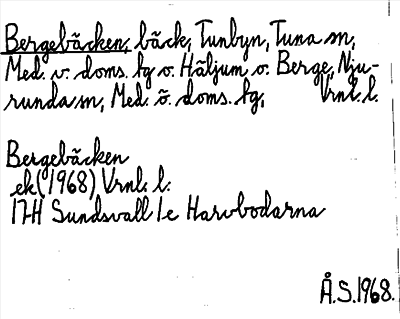 Bergebäcken, bäck, Tunbyn, Tuna sn,
Med. v. doms. lg o. Häljum o. Berge, Nju-
runda sn, Med. ö. doms. lg, Vrnl. l.
Bergebäcken
ek (1968) Vrnl. l.
17H Sundsvall 1e Harvbodarna
Å.S. 1968.